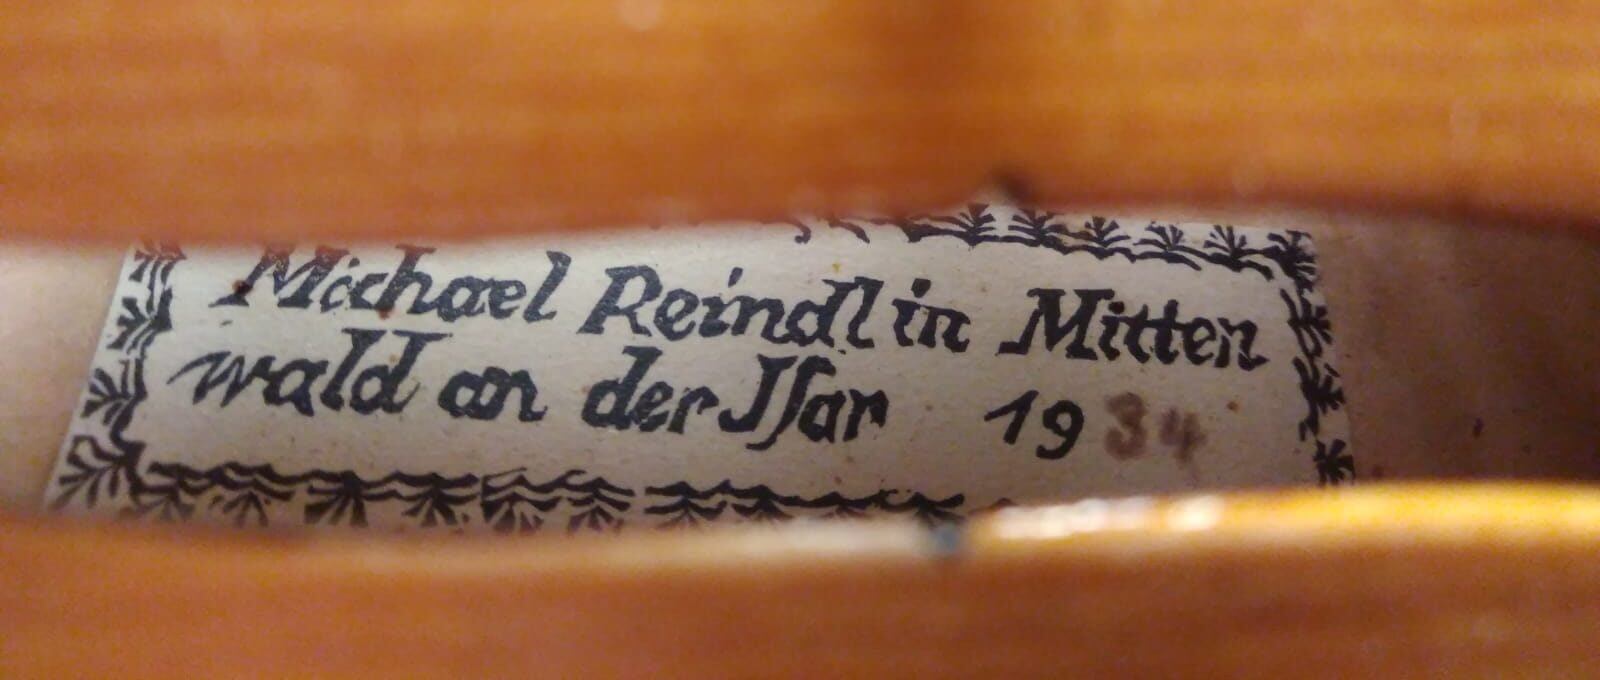 Michael Reindl in Mitten
wald an der Jſar 1934